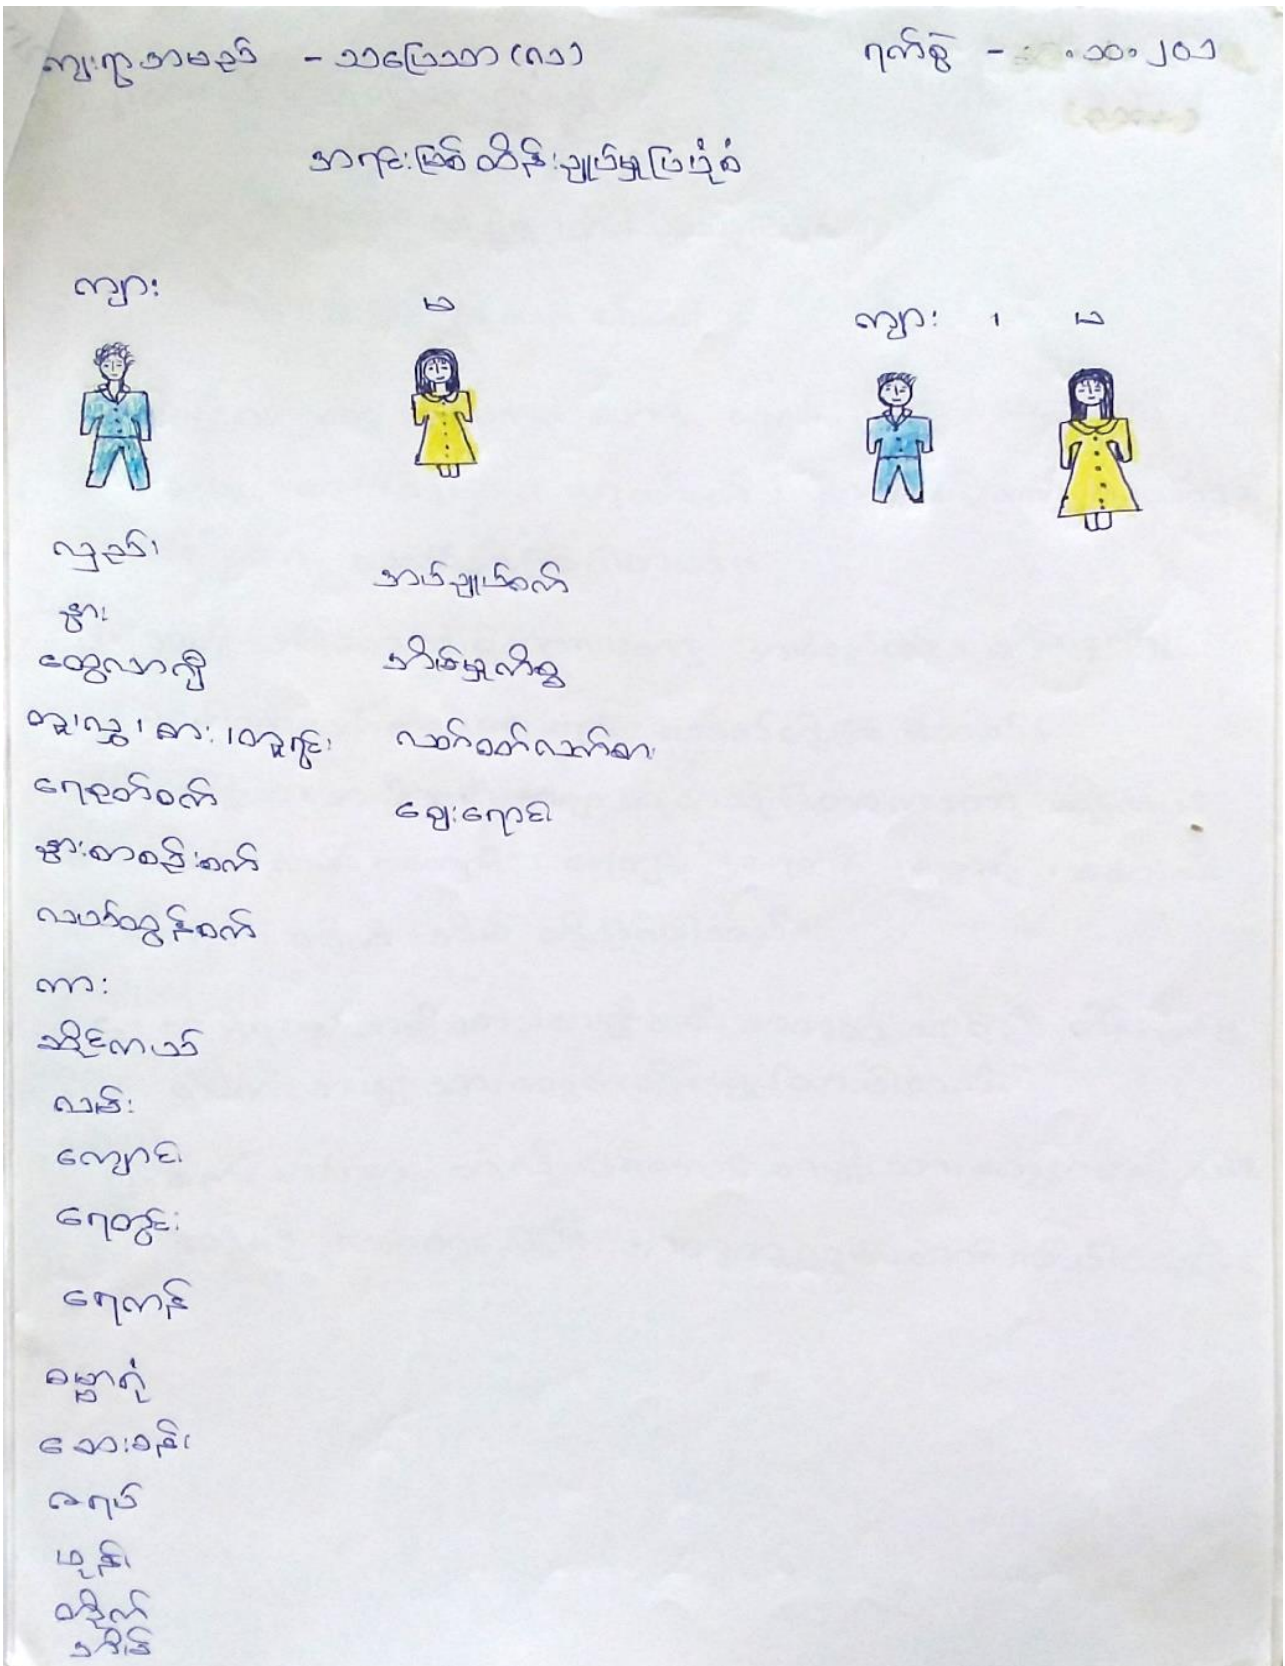 ကျေးရွာအမည် - သပြေသာ (လ၁)
ရက်စွဲ - . ၁၀. ၂၀၁
အရင်းမြစ် ထိန်းချုပ်မှုပြပုံစံ
ကျား
မ
ကျား ၊ မ
လှည်း
နွား
ထွေလာဂျီ
တူ၊ လွှ၊ ဓား၊ တူရွင်း
ရေစုတ်စက်
နွားစာစဉ်းစက်
လယ်ထွန်စက်
ကား
ဆိုင်ကယ်
လမ်း
ကျောင်း
ရေတွင်း
ရေကန်
ဓမ္မာရုံ
ဆေးခန်း
ဇရပ်
ဖုန်း
တိုက်
အိမ်
အပ်ချုပ်စက်
အိမ်မှုကိစ္စ
လက်ဝတ်လက်စား
ဈေးရောင်း